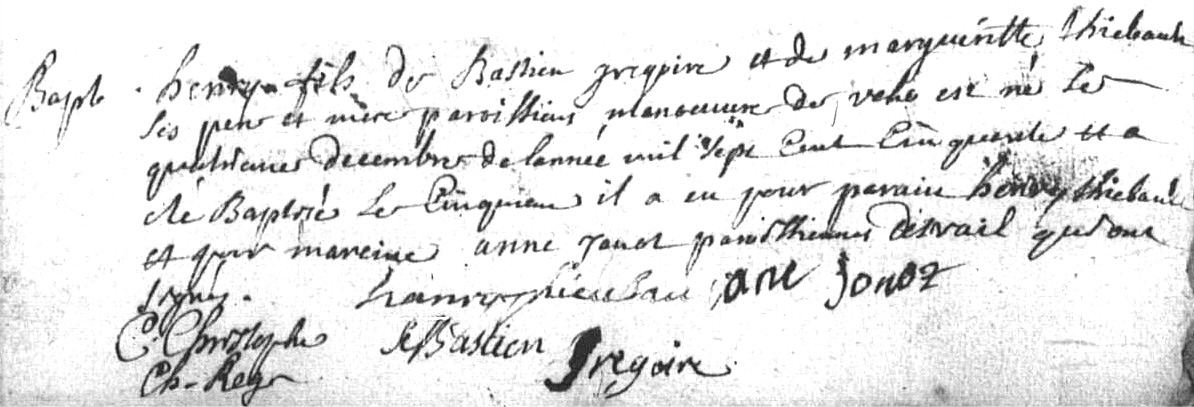 Bapt. henry fils de Bastien gregoire et de margueritte thiebault
ses pere et mere paroissiens manoeuvre de veho est né le
quatrieme decembre de lannée mil sept Cent Cinquente et a
été Baptisé le Cinquieme il a eu pour parain henry thiebault
et pour mareine anne Jonot paroissiennes qui ont
signé. thiebau ane Jonot
C. Christophe seBastien gregoire